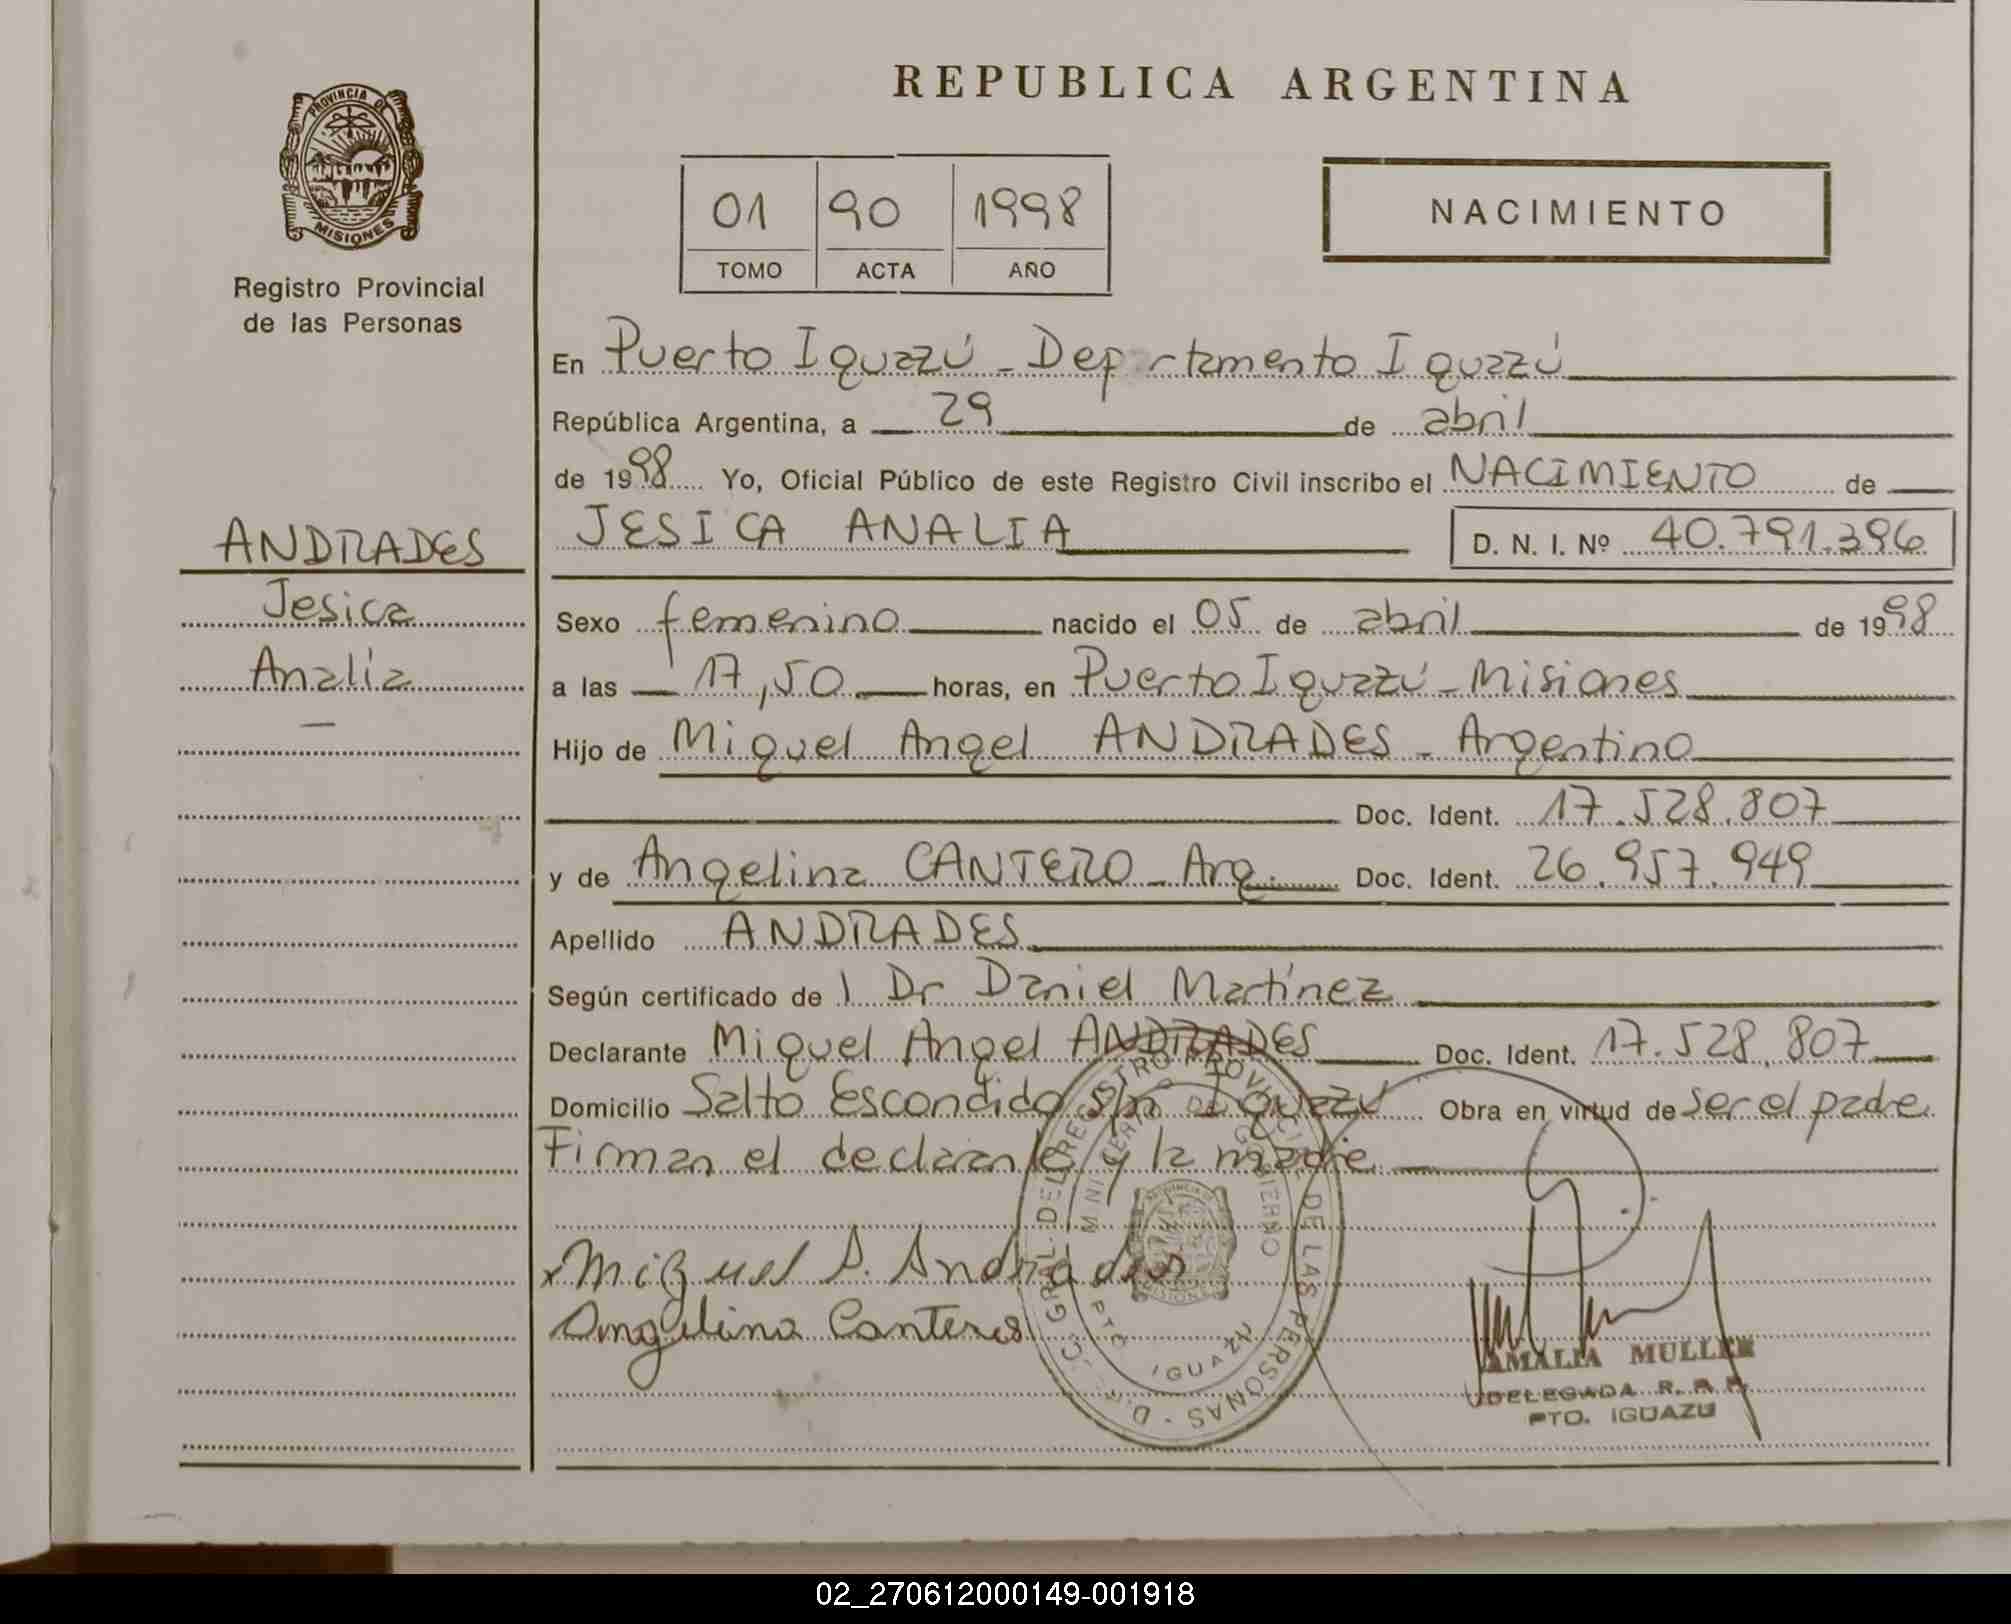 REPUBLICA ARGENTINA
PROVINCIA DE
MISIONES
Registro Provincial
de las Personas
01 90 1998
TOMO ACTA AÑO
NACIMIENTO
En Puerto Iguazú - Departamento Iguazú
República Argentina, a 29 de abril
de 1998 Yo, Oficial Público de este Registro Civil inscribo el NACIMIENTO de
JESICA ANALIA D. N. I. Nº 40.791.396
ANDRADES
Jesica
Analia
Sexo femenino nacido el 05 de abril de 1998
a las 17,50 horas, en Puerto Iguazú - Misiones
Hijo de Miguel Angel ANDRADES - Argentino
Doc. Ident. 17.528.807
y de Angelina CANTERO - Arg. Doc. Ident. 26.957.949
Apellido ANDRADES
Según certificado de l Dr Daniel Martínez
Declarante Miguel Angel ANDRADES Doc. Ident. 17.528.807
Domicilio Salto Escondido s/n Iguazú Obra en virtud de ser el padre
Firman el declarante y la madre
Miguel A. Andrades
Angelina Cantero
REGISTRO PROVINCIAL DE LAS PERSONAS
MINISTERIO DE GOBIERNO
PROVINCIA DE
MISIONES
PTO IGUAZU
AMALIA MULLER
DELEGADA R. P. P.
PTO. IGUAZU
02_270612000149-001918